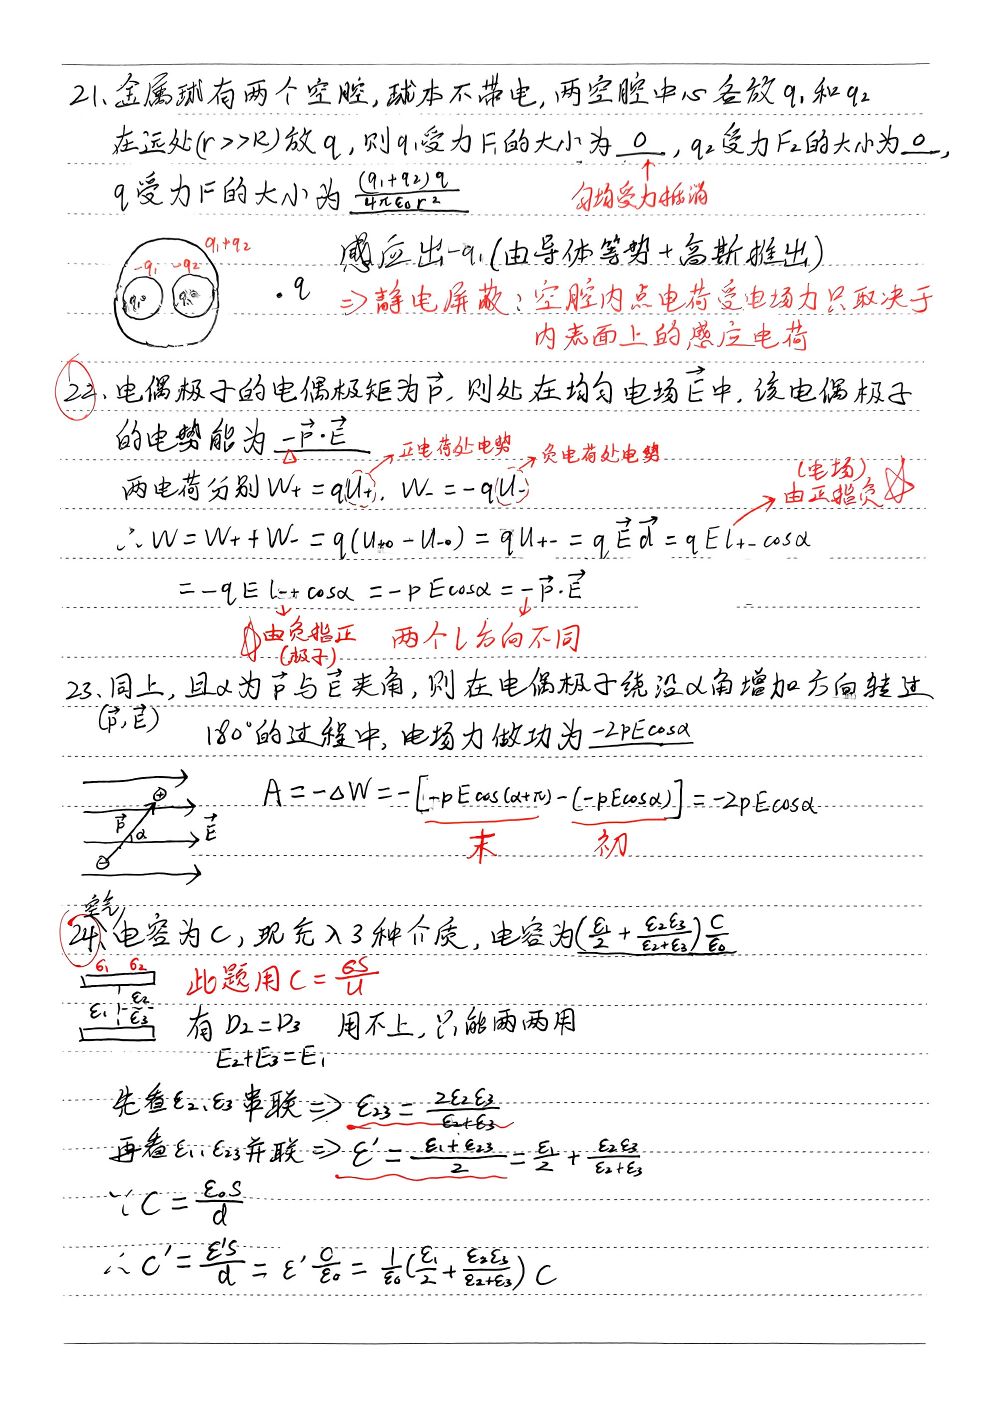 21、金属球有两个空腔，球本不带电，两空腔中心各放q₁和q₂
在远处(r>>R)放q，则q₁受力F₁的大小为 0 ，q₂受力F₂的大小为 0 ，
q受力F的大小为 (q₁+q₂)q / 4πε₀r²
匀均受力抵消
q₁+q₂
-q₁ -q₂
q₁ q₂
·q
感应出-q₁(由导体等势+高斯推出)
⇒静电屏蔽：空腔内点电荷受电场力只取决于
内表面上的感应电荷
22、电偶极子的电偶极矩为p⃗，则处在均匀电场E⃗中，该电偶极子
的电势能为 -p⃗·E⃗
正电荷处电势
负电荷处电势
两电荷分别W₊=qU₊，W₋=-qU₋
(电场)
由正指负
∴W=W₊+W₋=q(U₊₀-U₋₀)=qU₊₋=qE⃗d⃗=qEl₊₋cosα
=-qEl₋₊cosα=-pEcosα=-p⃗·E⃗
由负指正
(极子)
两个l方向不同
23、同上，且α为p⃗与E⃗夹角，则在电偶极子绕沿α角增加方向转过
(p⃗,E⃗)
180°的过程中，电场力做功为 -2pEcosα
p⃗ α E⃗
A=-ΔW=-[-pEcos(α+π)-(-pEcosα)]=-2pEcosα
末 初
空气
24、电容为C，现充入3种介质，电容为(ε₁/2+ε₂ε₃/(ε₂+ε₃))C/ε₀
σ₁ σ₂
ε₁ ε₂ ε₃
此题用C=σS/U
有D₂=D₃ 用不上，只能两两用
E₂+E₃=E₁
先看ε₂、ε₃串联⇒ε₂₃=2ε₂ε₃/(ε₂+ε₃)
再看ε₁、ε₂₃并联⇒ε'=(ε₁+ε₂₃)/2=ε₁/2+ε₂ε₃/(ε₂+ε₃)
∵C=ε₀S/d
∴C'=ε'S/d=ε'C/ε₀=1/ε₀(ε₁/2+ε₂ε₃/(ε₂+ε₃))C